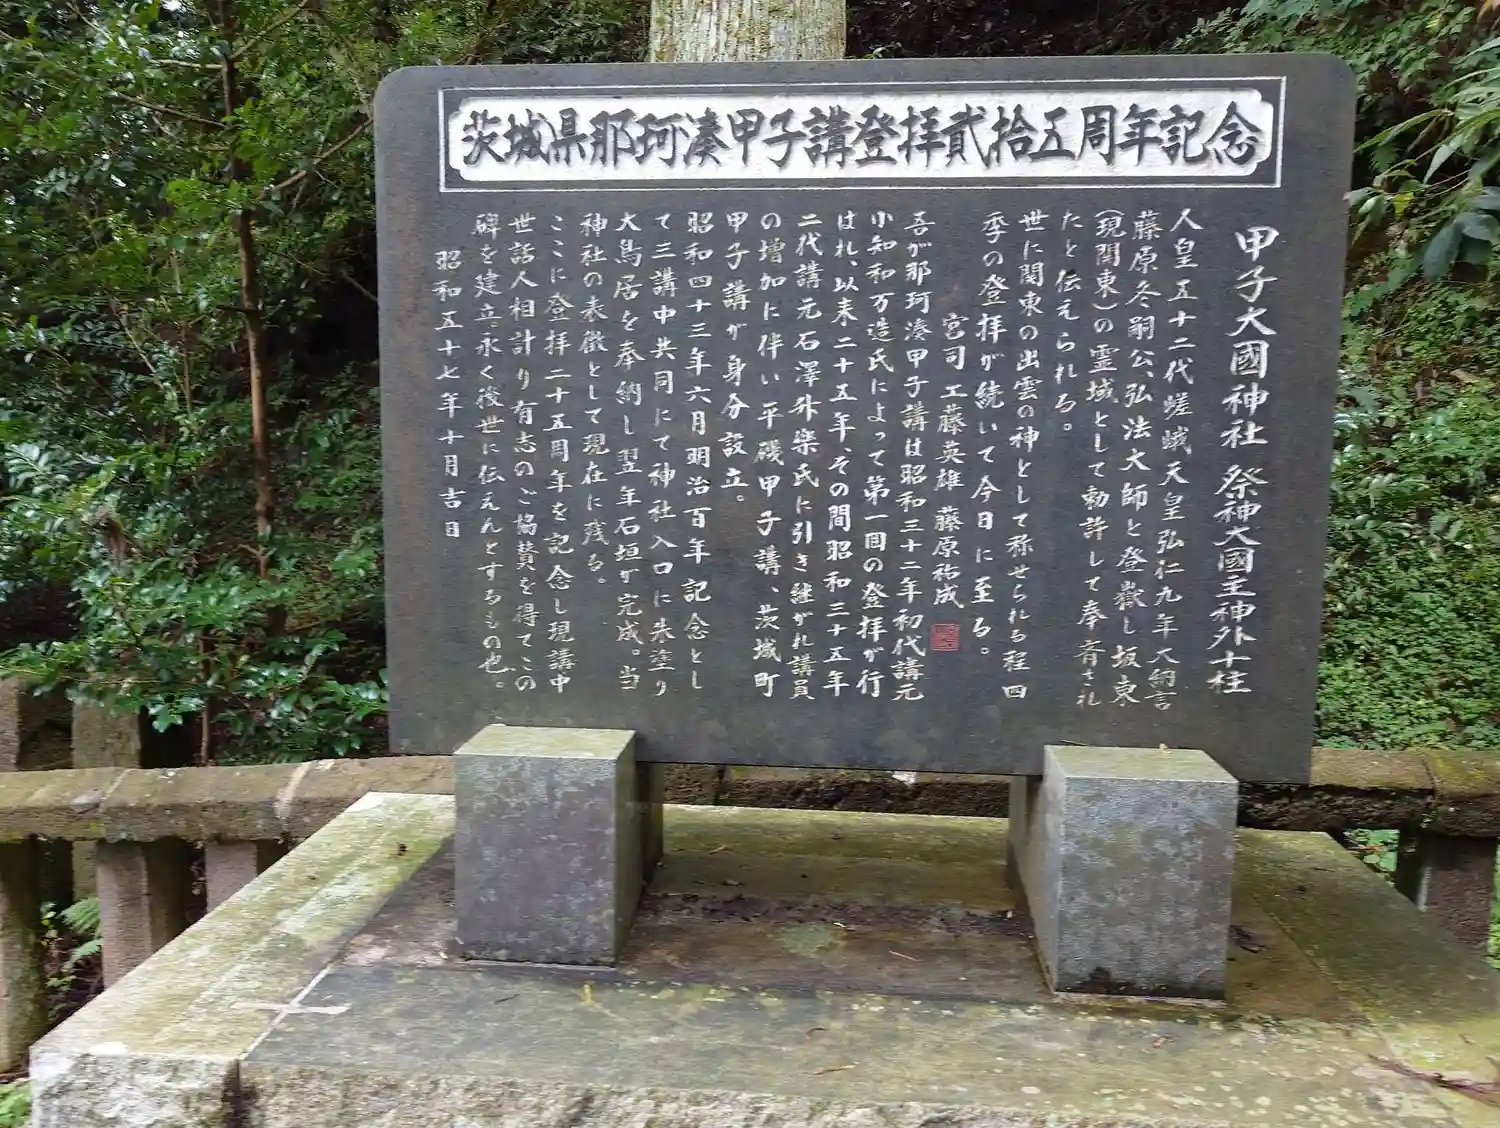 茨城県那珂湊甲子講登拝貳拾五周年記念
甲子大國神社 祭神大國主神外十柱
人皇五十二代嵯峨天皇弘仁九年大納言
藤原冬嗣公、弘法大師と登嶽し坂東
(現関東)の霊域として勅許して奉斉され
たと伝えられる。
世に関東の出雲の神として称せられる程四
季の登拝が続いて今日に至る。
宮司 工藤英雄 藤原祐成
吾が那珂湊甲子講は昭和三十二年初代講元
小知和万造氏によって第一回の登拝が行
はれ、以来二十五年、その間昭和三十五年
二代講元石澤舛栄氏に引き継がれ講員
の増加に伴い平磯甲子講、茨城町
甲子講が身分設立。
昭和四十三年六月明治百年記念とし
て三講中共同にて神社入口に朱塗り
大鳥居を奉納し翌年石垣が完成。当
神社の表徴として現在に残る。
ここに登拝二十五周年を記念し現講中
世話人相計り有志のご協賛を得てこの
碑を建立、永く後世に伝えんとするもの也。
昭和五十七年十月吉日